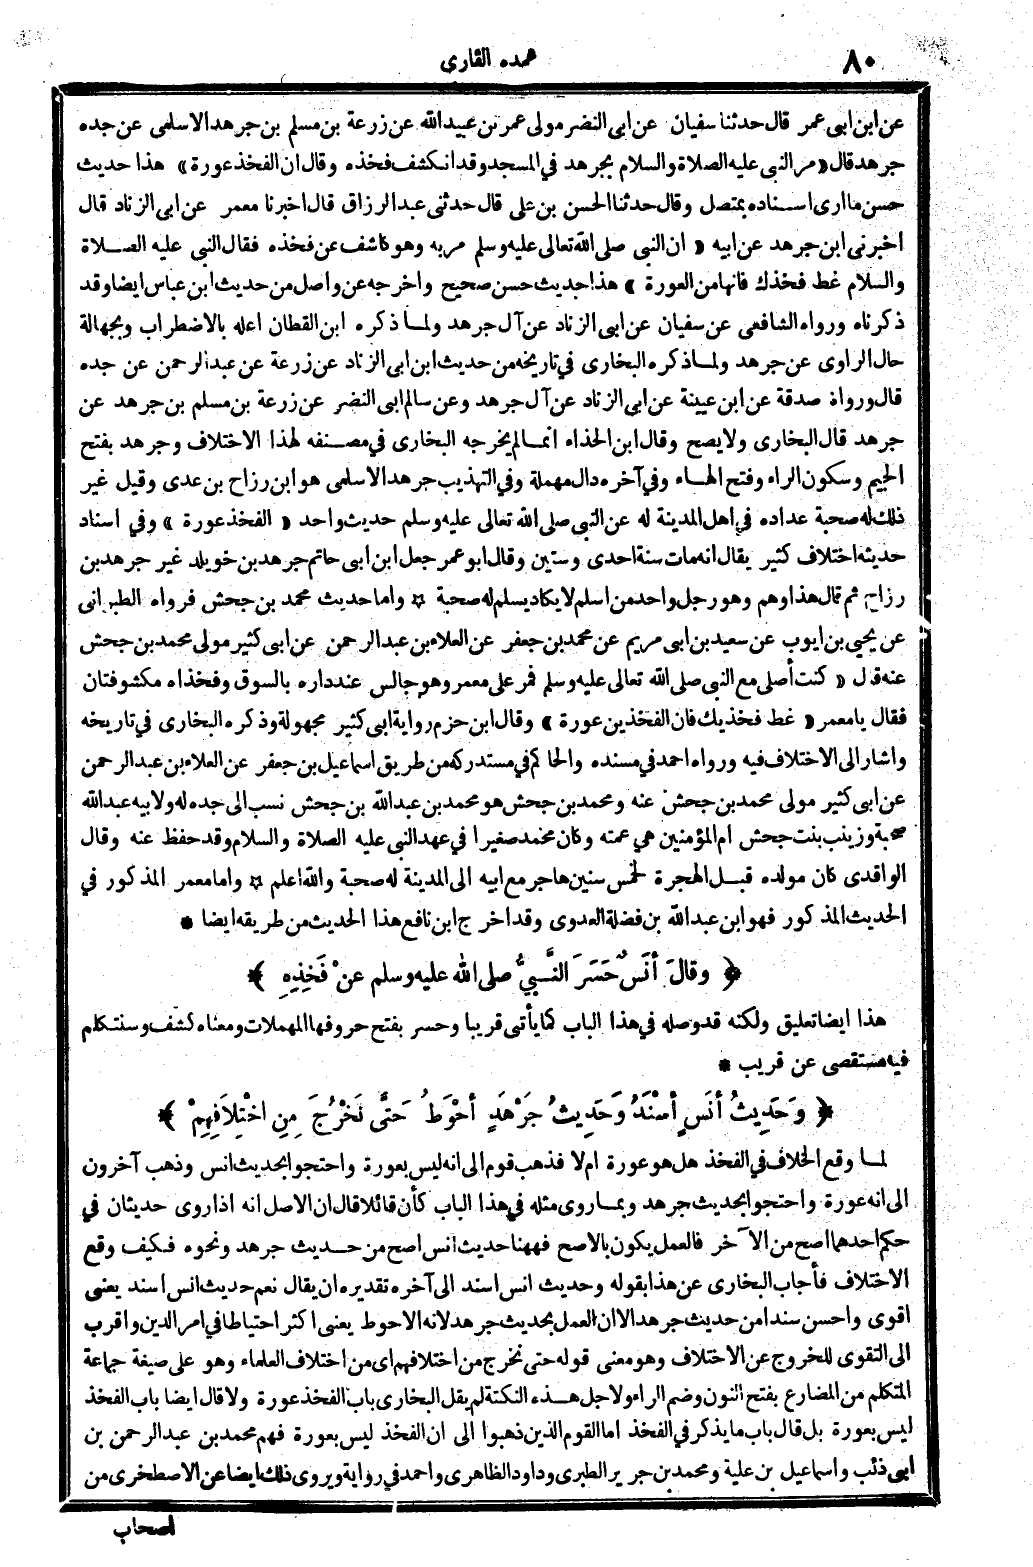 ٨٠
عمدة القارى
عن ابن ابى عمر قال حدثنا سفيان عن ابى النضر مولى عمر بن عبيد الله عن زرعة بن مسلم بن جرهد الاسلمى عن جده
جرهد قال «مر النبى عليه الصلاة والسلام بجرهد في المسجد وقد انكشف فخذه وقال ان الفخذ عورة» هذا حديث
حسن ما أرى اسناده بمتصل وقال حدثنا الحسن بن على قال حدثنى عبد الرزاق قال اخبرنا معمر عن ابى الزناد قال
اخبرنى ابن جرهد عن ابيه «ان النبى صلى الله تعالى عليه وسلم مر به وهو كاشف عن فخذه فقال النبى عليه الصلاة
والسلام غط فخذك فانها من العورة» هذا حديث حسن صحيح واخرجه عن واصل من حديث ابن عباس ايضا وقد
ذكرناه ورواه الشافعى عن سفيان عن ابى الزناد عن آل جرهد ولما ذكره ابن القطان اعله بالاضطراب وبجهالة
حال الراوى عن جرهد ولما ذكره البخارى في تاريخه من حديث ابن ابى الزناد عن زرعة عن عبد الرحمن عن جده
قال ورواه صدقة عن ابن عيينة عن ابى الزناد عن آل جرهد وعن سالم ابى النضر عن زرعة بن مسلم بن جرهد عن
جرهد قال البخارى ولا يصح وقال ابن الحذاء انما لم يخرجه البخارى في مصنفه لهذا الاختلاف وجرهد بفتح
الجيم وسكون الراء وفتح الهاء وفي آخره دال مهملة وفي التهذيب جرهد الاسلمى هو ابن رزاح بن عدى وقيل غير
ذلك له صحبة عداده في اهل المدينة له عن النبى صلى الله تعالى عليه وسلم حديث واحد «الفخذ عورة» وفي اسناد
حديثه اختلاف كثير يقال انه مات سنة احدى وستين وقال ابو عمر جعل ابن ابى حاتم جرهد بن خويلد غير جرهد بن
رزاح ثم قال هذا وهم وهو رجل واحد من اسلم لا يكاد يسلم له صحبة ۞ واما حديث محمد بن جحش فرواه الطبرانى
عن يحيى بن ايوب عن سعيد بن ابى مريم عن محمد بن جعفر عن العلاء بن عبد الرحمن عن ابى كثير مولى محمد بن جحش
عنه قال «كنت أصلى مع النبى صلى الله تعالى عليه وسلم فمر على معمر وهو جالس عند داره بالسوق وفخذاه مكشوفتان
فقال يا معمر «غط فخذيك فان الفخذين عورة» وقال ابن حزم رواية ابى كثير مجهولة وذكره البخارى في تاريخه
واشار الى الاختلاف فيه ورواه احمد في مسنده والحاكم في مستدركه من طريق اسماعيل بن جعفر عن العلاء بن عبد الرحمن
عن ابى كثير مولى محمد بن جحش عنه ومحمد بن جحش هو محمد بن عبد الله بن جحش نسب الى جده له ولابيه عبد الله
صحبة وزينب بنت جحش ام المؤمنين هي عمته وكان محمد صغيرا في عهد النبى عليه الصلاة والسلام وقد حفظ عنه وقال
الواقدى كان مولده قبل الهجرة لخمس سنين هاجر مع ابيه الى المدينة له صحبة والله اعلم ۞ واما معمر المذكور في
الحديث المذكور فهو ابن عبد الله بن فضلة العدوى وقد اخرج ابن نافع هذا الحديث من طريقه ايضا *
﴿ وقالَ أَنَسٌ حَسَرَ النَّبِيُّ صلى الله عليه وسلم عنْ فَخِذِهِ ﴾*
هذا ايضا تعليق ولكنه قد وصله في هذا الباب كما يأتى قريبا وحسر بفتح حروفها المهملات ومعناه كشف وسنتكلم
فيه مستقصى عن قريب *
﴿ وَحَدِيثُ أَنَسٍ أَسْنَدُ وَحَدِيثُ جَرْهَدٍ أَحْوَطُ حَتَّى نَخْرُجَ مِنِ اخْتِلَافِهِمْ ﴾*
لما وقع الخلاف في الفخذ هل هو عورة ام لا فذهب قوم الى انه ليس بعورة واحتجوا بحديث انس وذهب آخرون
الى انه عورة واحتجوا بحديث جرهد وبما روى مثله في هذا الباب كأن قائلا قال ان الاصل انه اذا روى حديثان في
حكم احدهما اصح من الآخر فالعمل يكون بالاصح فههنا حديث انس اصح من حديث جرهد ونحوه فكيف وقع
الاختلاف فأجاب البخارى عن هذا بقوله وحديث انس اسند الى آخره تقديره ان يقال نعم حديث انس اسند يعنى
اقوى واحسن سندا من حديث جرهد الا ان العمل بحديث جرهد لانه الاحوط يعنى اكثر احتياطا في امر الدين واقرب
الى التقوى للخروج عن الاختلاف وهو معنى قوله حتى نخرج من اختلافهم اى من اختلاف العلماء وهو على صيغة جماعة
المتكلم من المضارع بفتح النون وضم الراء ولاجل هذه النكتة لم يقل البخارى باب الفخذ عورة ولا قال ايضا باب الفخذ
ليس بعورة بل قال باب ما يذكر في الفخذ اما القوم الذين ذهبوا الى ان الفخذ ليس بعورة فهم محمد بن عبد الرحمن بن
ابى ذئب واسماعيل بن علية ومحمد بن جرير الطبرى وداود الظاهرى واحمد في رواية ويروى ذلك ايضا عن الاصطخرى من
اصحاب